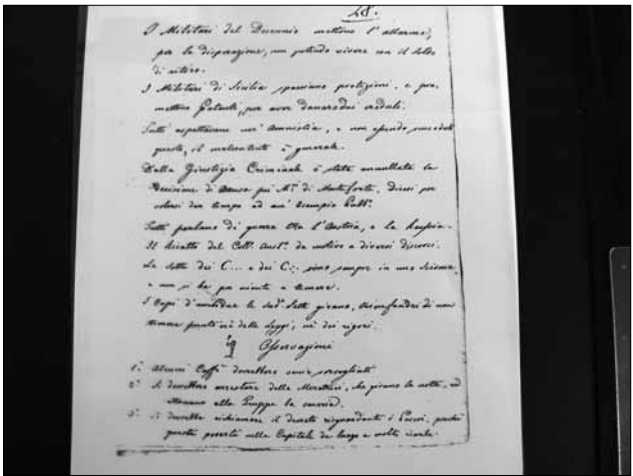 48.
I Militari del Decennio mettono l'allarme,
per la disperazione, non potendo vivere con il soldo
di ritiro.
I Militari di Sicilia spacciano protezioni, e pro-
mettono Patenti, per aver danaro dai creduli.
Tutti aspettavano un' Amnistia, e non essendo succeduta
questa, il malcontento è generale.
Dalla Giustizia Criminale è stata annullata la
Decisione di accusa pei M.ti di Monteforte, dicesi per
volersi dar tempo ad un' esempio Pubb.o
Tutti parlano di guerra tra l'Austria, e la Russia.
Il Ricatto del Coll. Aust.o dà motivo a diversi discorsi.
Le Sette dei C... e dei C:. sono sempre in uno Scisma,
e non si ha più niente a temere.
I Capi d'ambedue le sud.e Sette girano, di non
temere punto nè delle Leggi, nè dei rigori.
Osservazioni
1.° Alcuni Caffè dovrebbero essere sorvegliati
2.° Si dovrebbero arrestare delle Meretrici, che girano la notte, ed
alle Truppe la
3.° Si dovrebbe richiamare il decreto riguardante i Poveri, poichè
questa povertà nella Capitale dà luogo a molte